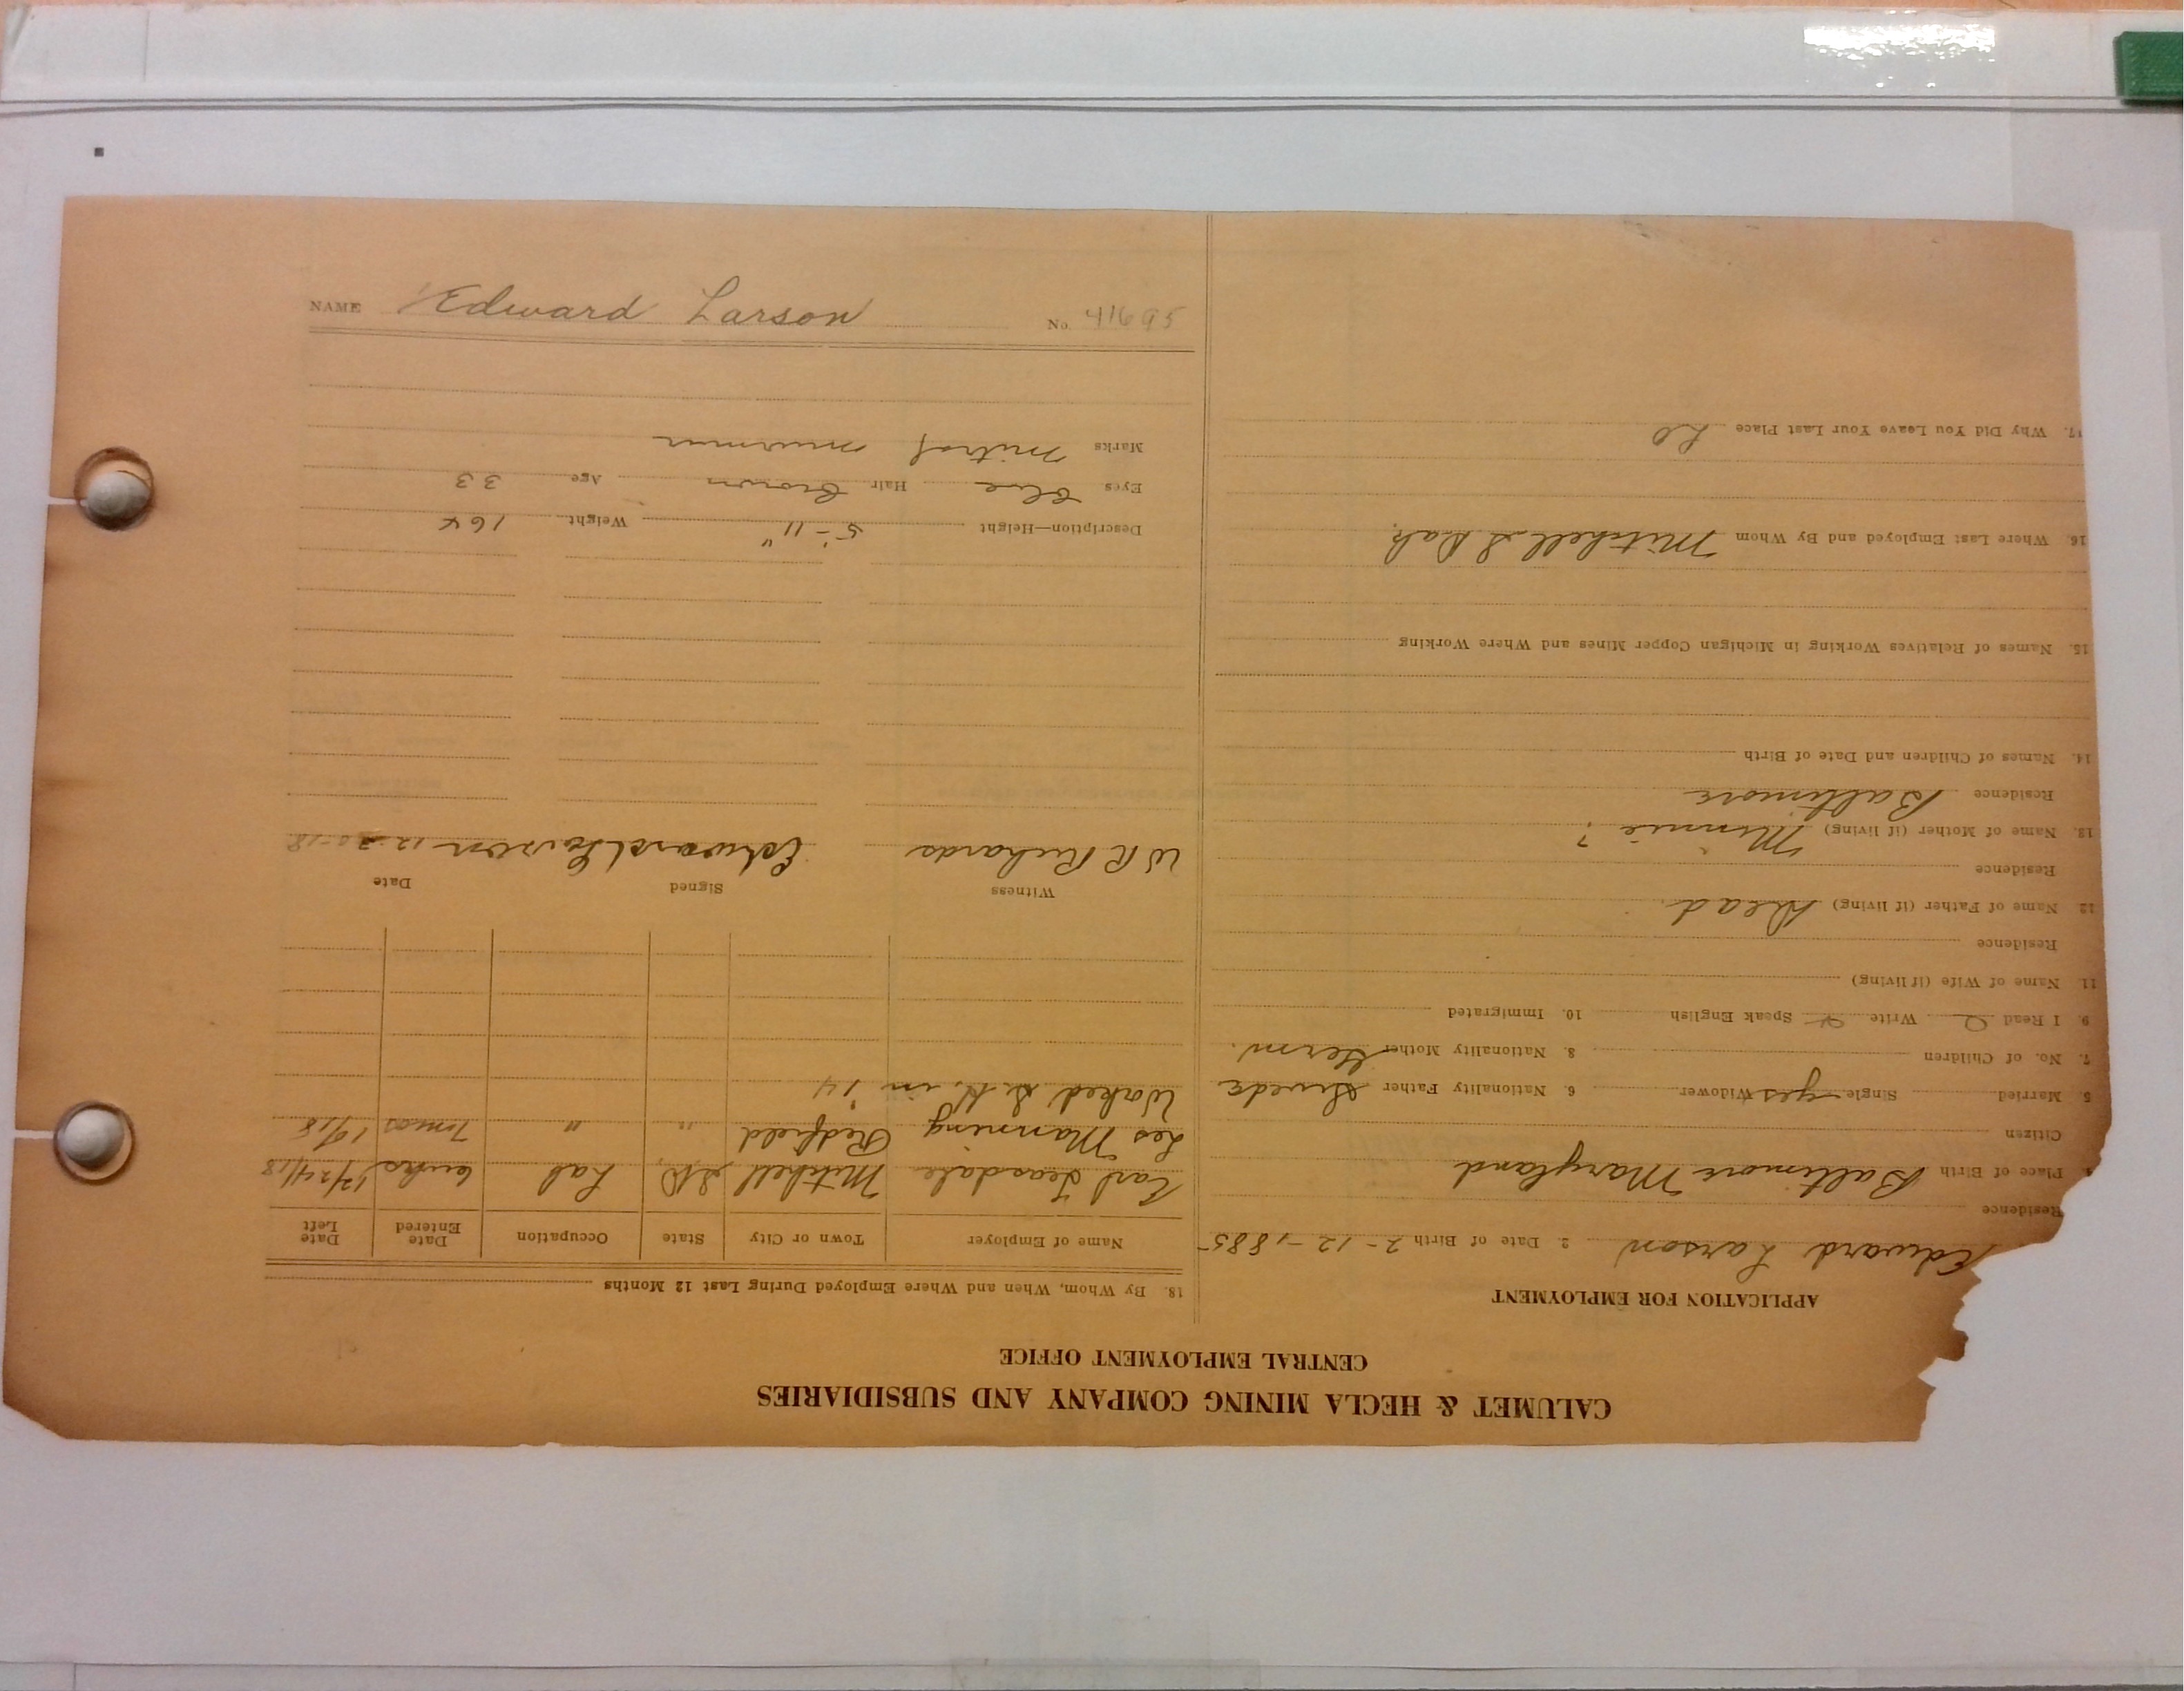 NAME Edward Larson No. 41695
CALUMET & HECLA MINING COMPANY AND SUBSIDIARIES
CENTRAL EMPLOYMENT OFFICE
APPLICATION FOR EMPLOYMENT
Edward Larson 2. Date of Birth 2-12-1885
Residence
Place of Birth Baltimore Maryland
Citizen
5. Married Single yes Widower 6. Nationality Father Swede
7. No. of Children 8. Nationality Mother Germ.
9. I Read Write Speak English 10. Immigrated
11. Name of Wife (if living)
Residence
12. Name of Father (if living) Dead
Residence
13. Name of Mother (if living) Minnie ?
Residence Baltimore
14. Names of Children and Date of Birth
15. Names of Relatives Working in Michigan Copper Mines and Where Working
16. Where Last Employed and By Whom Mitchell S Dak.
17. Why Did You Leave Your Last Place
18. By Whom, When and Where Employed During Last 12 Months
Name of Employer Town or City State Occupation Date Entered Date Left
Carl Teasdale Mitchell SD Lab 6 wks 12/24/18
Les Manning Redfield " " 7 mos
in '14
Witness Signed Date
W R Richards Edward Larson 12-30-18
Description—Height 5'-11" Weight 164
Eyes blue Hair brown Age 33
Marks mitral murmur